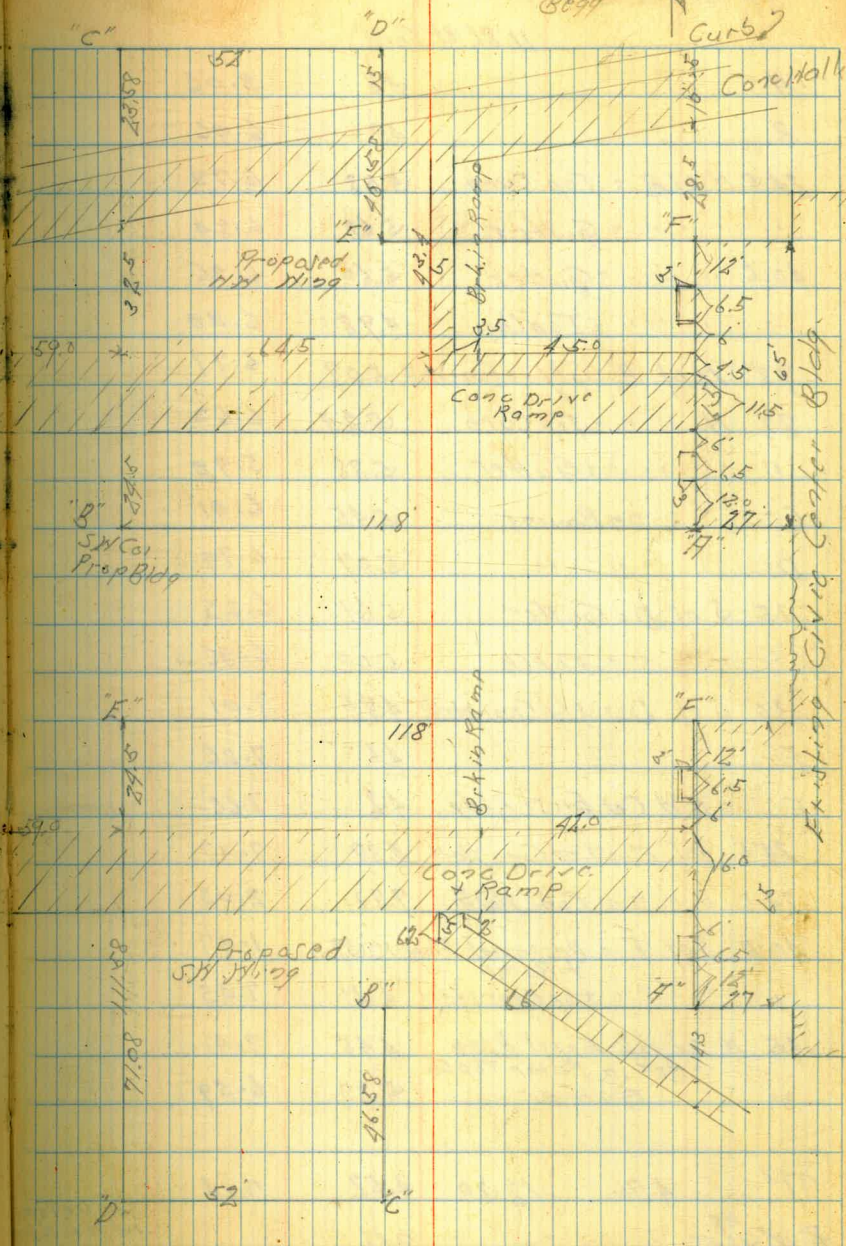 "C"
52'
"D"
Curb
Conc Walk
23.58
15'
46.58
28.5
"E"
"F"
Proposed
NW Wing
43.4
5
Brkin Ramp
32.5
3'
12'
6.5
6'
59.0
64.5
3.5
45.0
4.5
65'
Conc Drive
Ramp
11.5
6'
6.5
3'
12.0
27
24.5
"B"
SW Cor.
Prop Bldg
118'
"A"
Existing Civic Center Bldg.
"E"
118'
Brkin Ramp
"F"
24.5
3'
12'
6.5
6'
59.0
42.0
16.0
Conc Drive
+ Ramp
65
5
2'
6'
6.5
12'
27
Proposed
SW Wing
"B"
"A"
71.08
46.58
"D"
52'
"C"